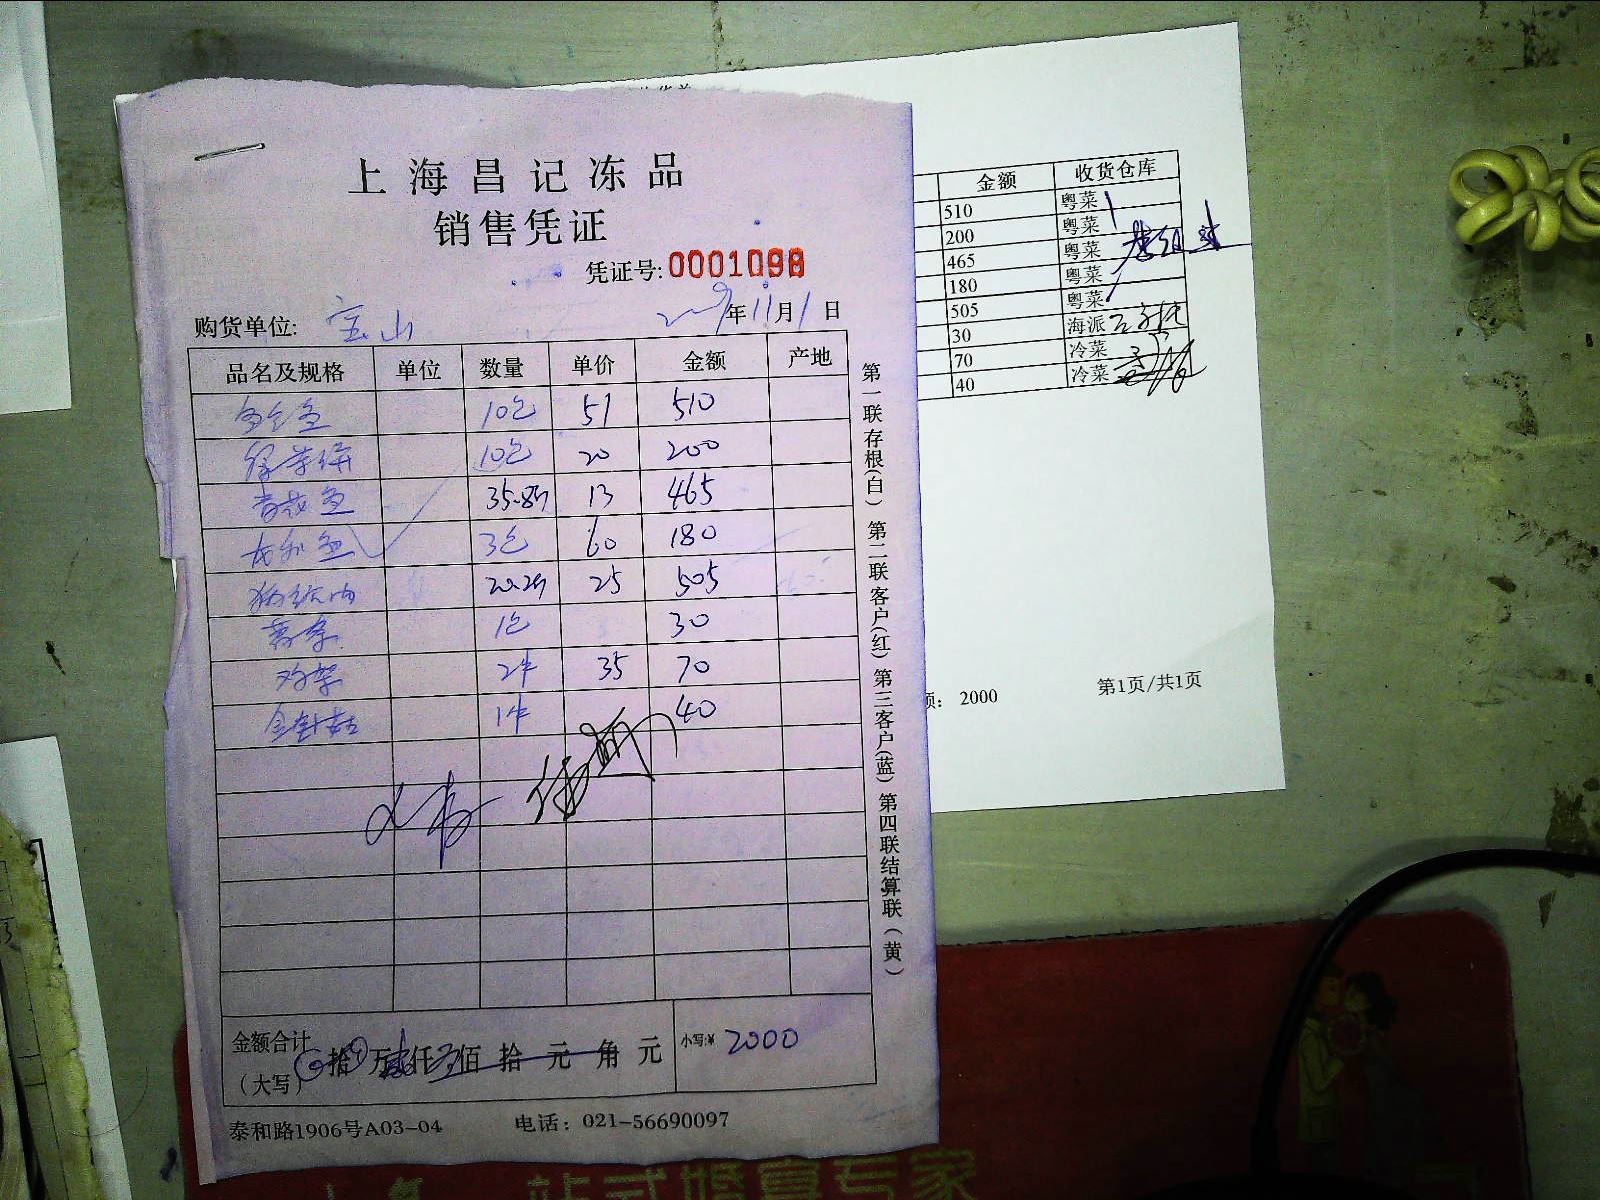 上海昌记冻品
销售凭证
凭证号: 0001098
购货单位: 宝山 年 11 月 1 日
品名及规格 单位 数量 单价 金额 产地
10包 51 510
10包 20 200
鱼 35.8斤 13 465
龙利鱼 3包 60 180
20.2斤 25 505
薯条 1包 30
鸡架 2件 35 70
金针菇 1件 40
金额合计
(大写) 拾 万 仟 佰 拾 元 角 元 小写:¥ 2000
泰和路1906号A03-04 电话: 021-56690097
第一联存根(白) 第二联客户(红) 第三客户(蓝) 第四联结算联(黄)
金额 收货仓库
510 粤菜
200 粤菜
465 粤菜
180 粤菜
505 粤菜
30 海派
70 冷菜
40 冷菜
额: 2000 第1页/共1页
站式婚宴专家